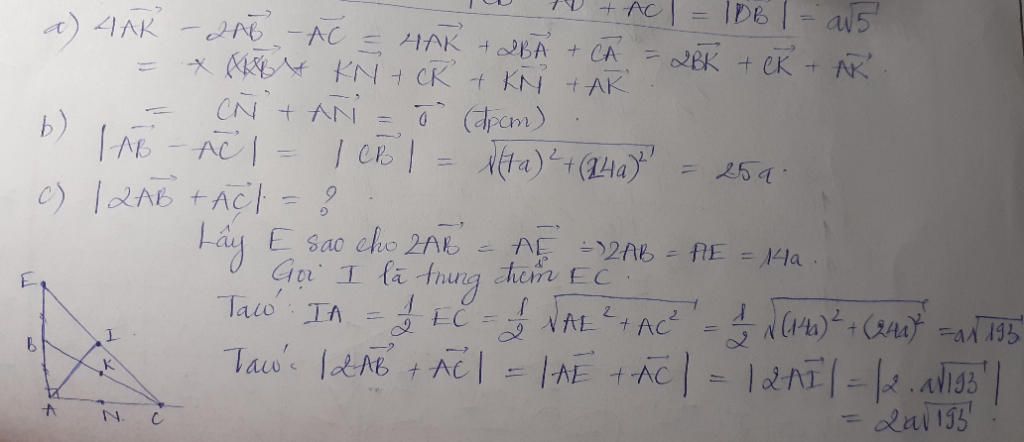 |CD AD + AC| = |DB| = a√5
a) 4AK - 2AB - AC = 4AK + 2BA + CA = 2BK + CK + AK
= KN + CK + KN + AK
= CN + AN = 0 (đpcm).
b) |AB - AC| = |CB| = √(7a)² + (24a)² = 25a.
c) |2AB + AC| = ?
Lấy E sao cho 2AB = AE => 2AB = AE = 14a.
Gọi I là trung điểm EC.
Ta có: IA = 1/2 EC = 1/2 √AE² + AC² = 1/2 √(14a)² + (24a)² = a√193
Ta có: |2AB + AC| = |AE + AC| = |2AI| = |2.a√193|
= 2a√193.
E
B
I
K
A
N
C